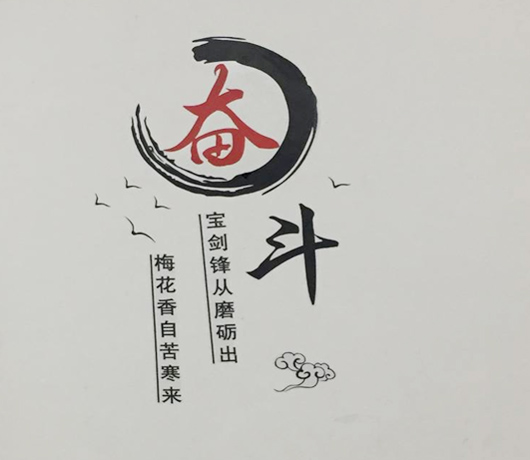 奋
斗
宝剑锋从磨砺出
梅花香自苦寒来